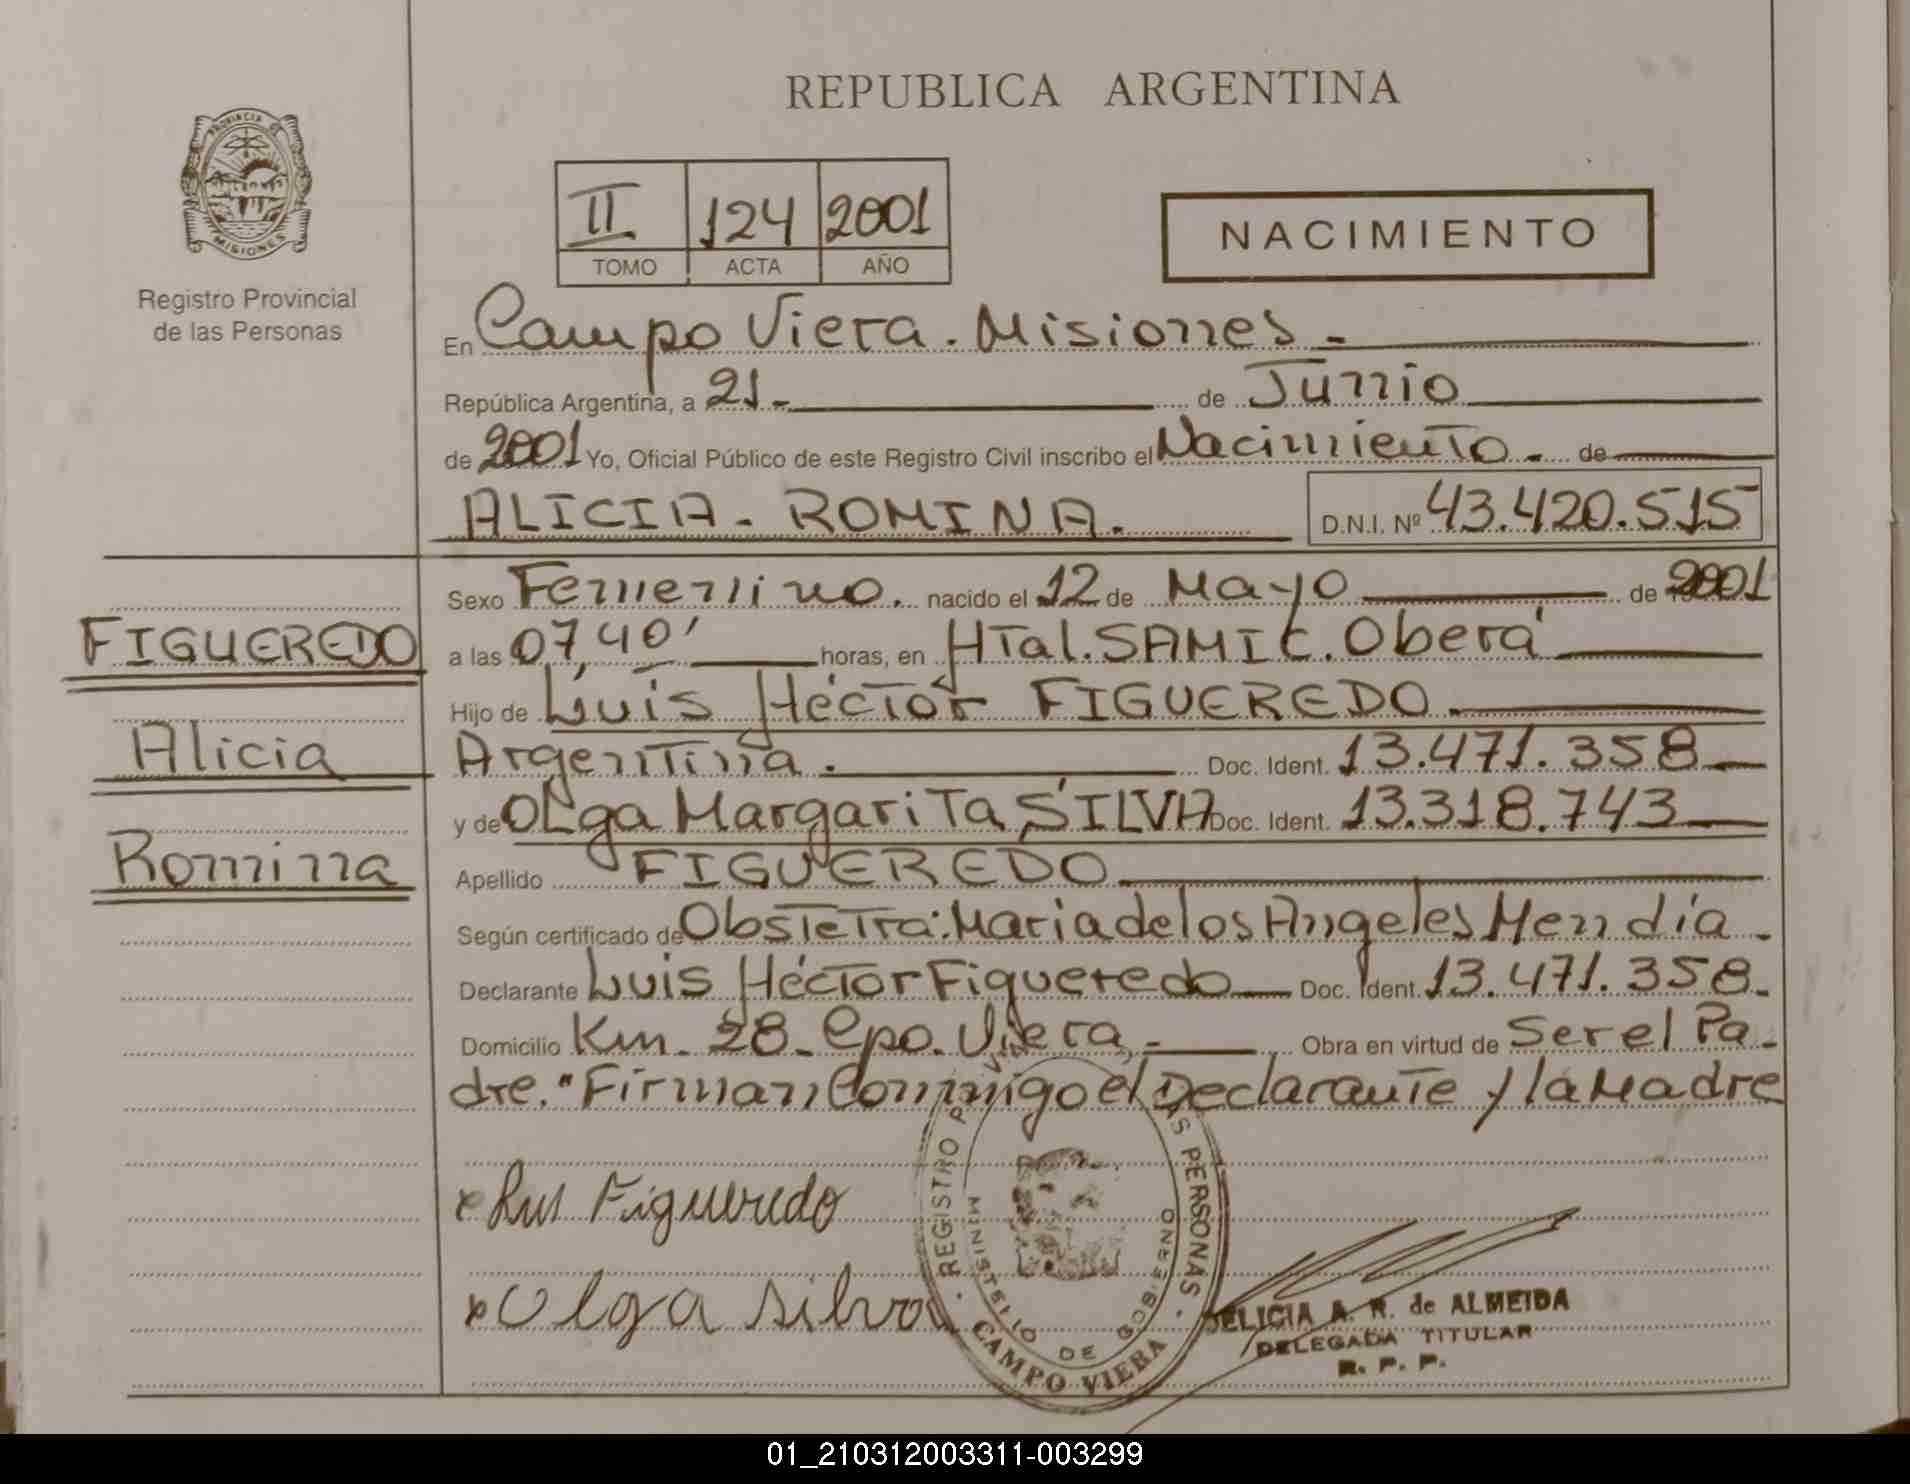 REPUBLICA ARGENTINA
PROVINCIA DE
MISIONES
Registro Provincial
de las Personas
II 124 2001
TOMO ACTA AÑO
NACIMIENTO
En Campo Viera. Misiones.-
República Argentina, a 21.- de Junio
de 2001 Yo, Oficial Público de este Registro Civil inscribo el Nacimiento.- de
ALICIA - ROMINA.
D.N.I. Nº 43.420.515
FIGUEREDO
Alicia
Romina
Sexo Femenino. nacido el 12 de Mayo de 2001
a las 07,40' horas, en HTal. SAMIC. Oberá
Hijo de Luis Héctor FIGUEREDO.
Argentina. Doc. Ident. 13.471.358
y de OLga Margarita SILVA Doc. Ident. 13.318.743
Apellido FIGUEREDO
Según certificado de Obstetra: Maria de los Angeles Mendía.
Declarante Luis Héctor Figueredo Doc. Ident. 13.471.358.
Domicilio Km. 28. Cpo. Viera,- Obra en virtud de Ser el Pa-
dre." Firman Conmigo el Declarante y la Madre
x Luis Figueredo
x Olga Silva
REGISTRO PERSONAS
MINISTERIO DE GOBIERNO
CAMPO VIERA
A. R. de ALMEIDA
DELEGADA TITULAR
R. P. P.
01_210312003311-003299